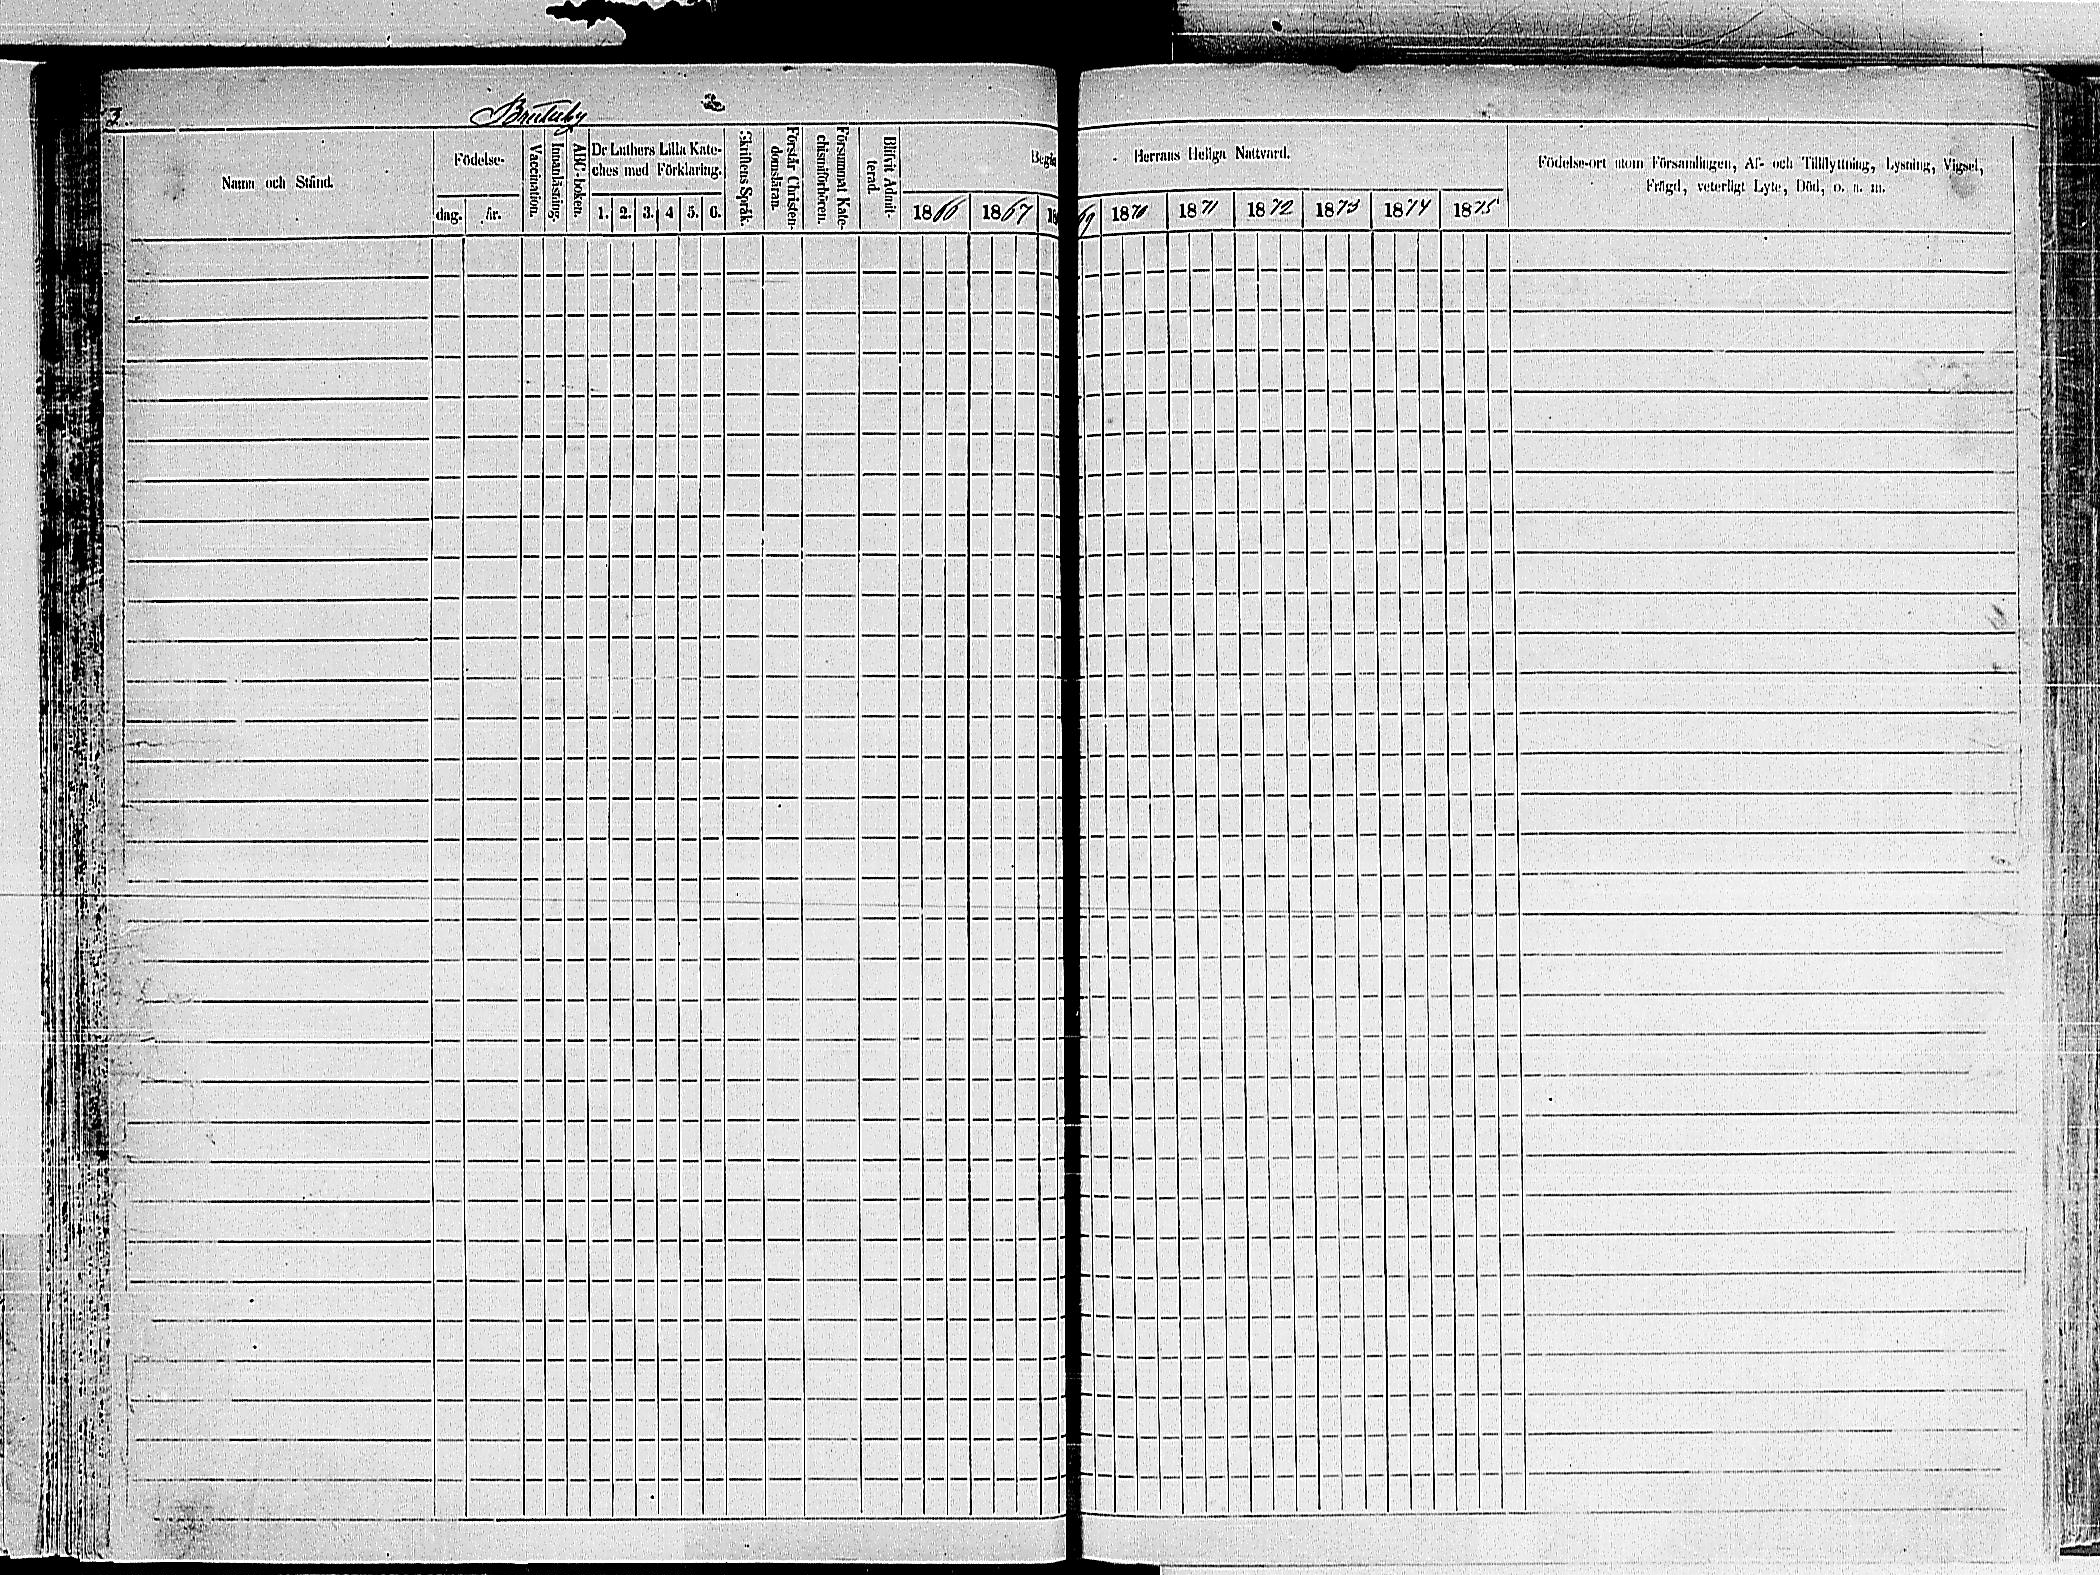 3.
Namn och Stånd.
Födelse-
dag.
år.
Vaccination.
Innanläsning.
ABC-boken.
Dr Luthers Lilla Kate-
ches med Förklaring.
1. 2. 3. 4 5. 6.
Skriftens Språk.
Förstår Christen-
domsläran.
Försummat Kate-
chismiförhören.
Blifvit Admit-
terad.
Begå
Herrans Heliga Nattvard.
1866 1867 18
69 1870 1871 1872 1873 1874 1875
Födelse-ort utom Församlingen, Af- och Tillflyttning, Lysning, Vigsel,
Frägd, veterligt Lyte, Död, o. s. m.